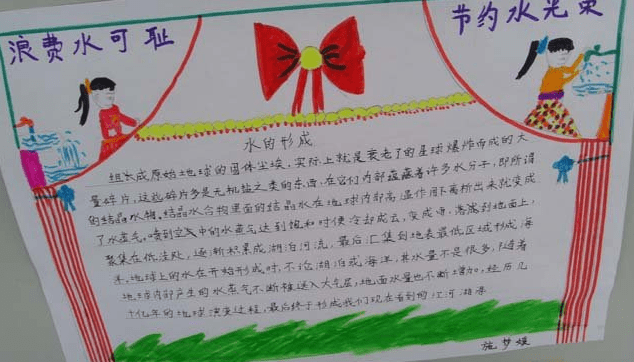 浪费水可耻
节约水光荣
水的形成
组成原始地球的固体尘埃,实际上就是衰老了的星球爆炸而成的大
量碎片,这些碎片多是无机盐之类的东西,在它们内部蕴藏着许多水分子,即所谓
的结晶水物。结晶水合物里面的结晶水在地球内部高温作用下离析出来就变成
了水蒸气。喷到空中的水蒸气达到饱和时便冷却成云,变成雨,落到地面上,
聚集在低洼处,逐渐积累成湖泊河流,最后汇集到地表最低区域形成海
洋。地球上的水在开始形成时,不论湖泊或海洋,其水量不是很多,随着
地球内部产生的水蒸气不断被送入大气层,地面水量也不断增加,经历几
十亿年的地球演变过程,最后终于形成我们现在看到的江河湖海
施梦媛